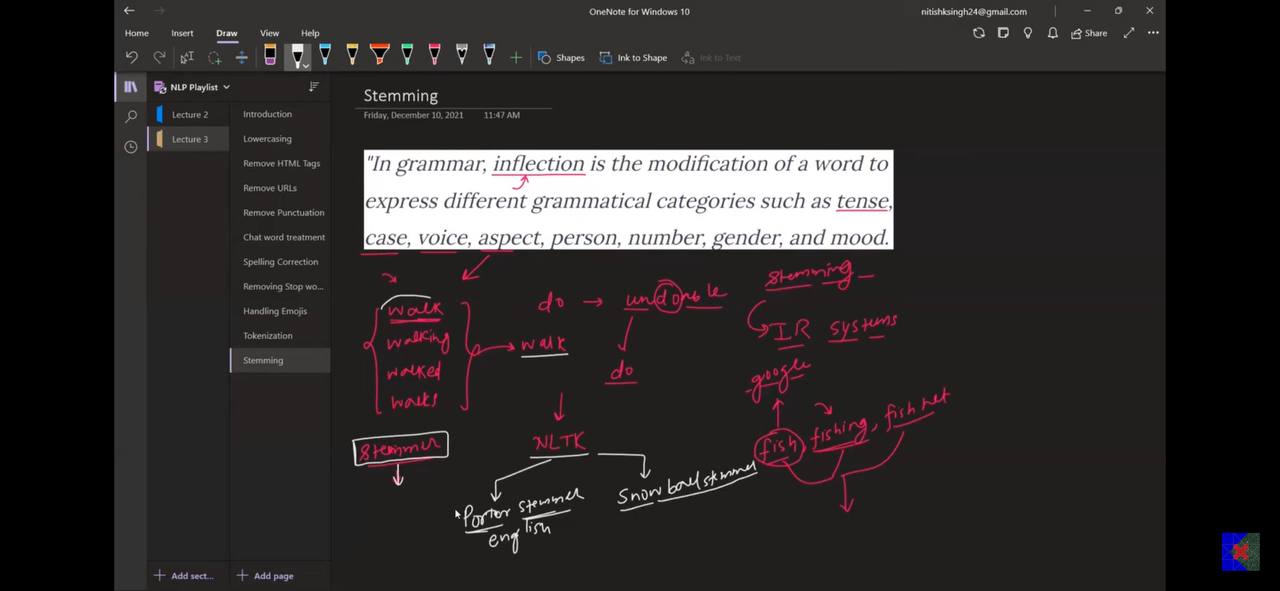 OneNote for Windows 10
nitishksingh24@gmail.com
Home Insert Draw View Help
Share
Shapes Ink to Shape Ink to Text
NLP Playlist
Lecture 2
Lecture 3
Introduction
Lowercasing
Remove HTML Tags
Remove URLs
Remove Punctuation
Chat word treatment
Spelling Correction
Removing Stop wo...
Handling Emojis
Tokenization
Stemming
Add sect...
Add page
Stemming
Friday, December 10, 2021 11:47 AM
"In grammar, inflection is the modification of a word to
express different grammatical categories such as tense,
case, voice, aspect, person, number, gender, and mood.
walk
walking
walked
walks
walk
do → undonable
do
Stemming
IR systems
google
fish, fishing, fishnet
Stemmer
NLTK
Porter stemmer
english
Snowball stemmer